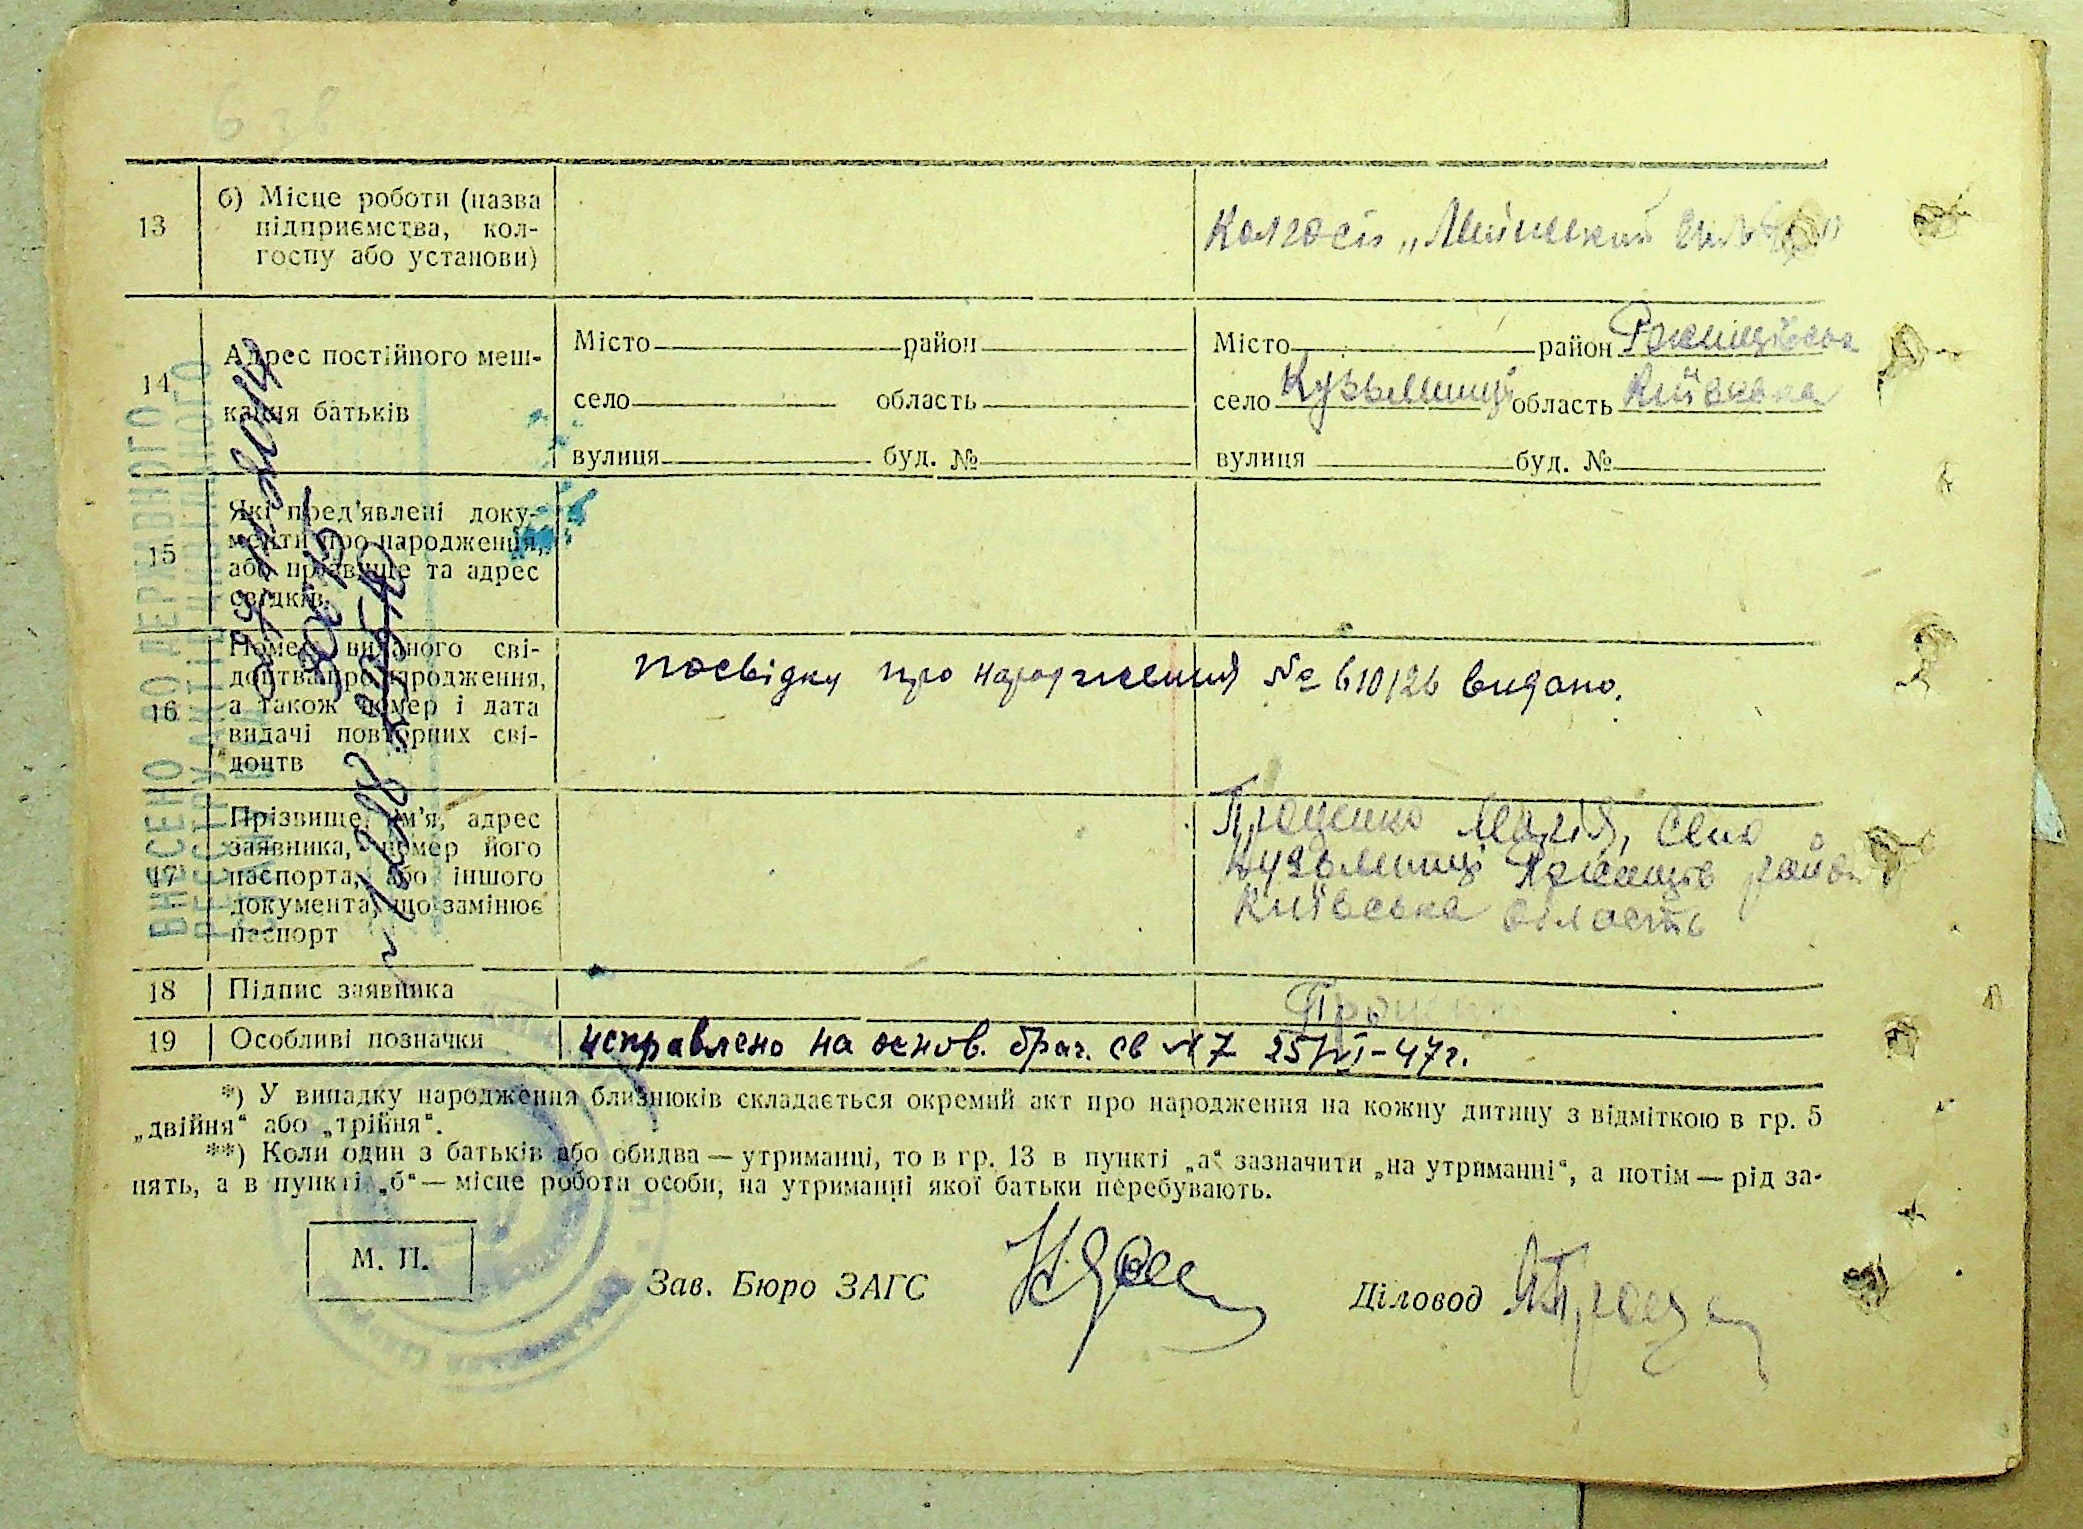 13
б) Місце роботи (назва
підприємства, кол-
госпу або установи)
Колгосп „
14
Адрес постійного меш-
кання батьків
Місто район
село область
вулиця буд. №
Місто район
село Кузьминці область Київська
вулиця буд. №
15
Які пред'явлені доку-
менти про народження,
або прізвище та адрес
свідків.
16
Номер виданого сві-
доцтва про народження,
а також номер і дата
видачі повторних сві-
доцтв
посвідку про народження № 610/26 видано.
17
Прізвище, ім'я, адрес
заявника, номер його
паспорта, або іншого
документа, що замінює
паспорт
Проценко Марія, село
Кузьминці район
Київська область
18
Підпис заявника
19
Особливі позначки
исправлено на основ. брач. св № 7 25/VI-47г.
*) У випадку народження близнюків складається окремий акт про народження на кожну дитину з відміткою в гр. 5
„двійня“ або „трійня“.
**) Коли один з батьків або обидва — утриманці, то в гр. 13 в пункті „а“ зазначити „на утриманні“, а потім — рід за-
нять, а в пункті „б“ — місце роботи особи, на утриманні якої батьки перебувають.
М. П.
Зав. Бюро ЗАГС
Діловод
ВНЕСЕНО ДО ДЕРЖАВНОГО
РЕЄСТРУ АКТІВ ЦИВІЛЬНОГО
СТАНУ